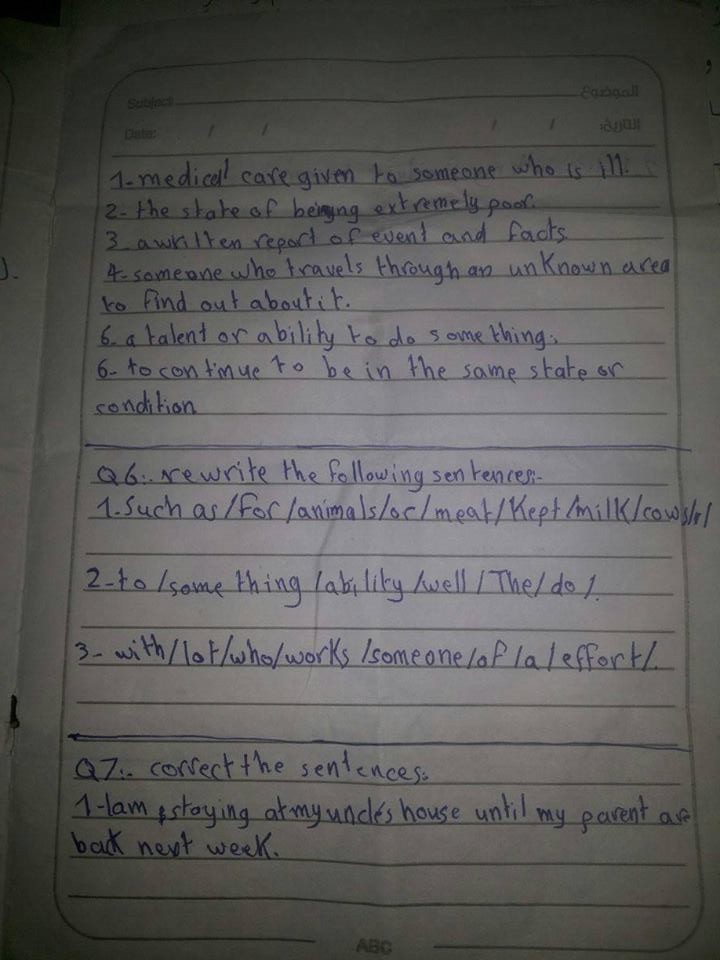 Subject الموضوع
Date: / / / / التاريخ:
1-medical care given to someone who is ill.
2- the state of beiyng extremely poor.
3_ awritten report of event and facts
4-someone who travels through an unknown area
to find out about it.
6. a talent or ability to do something.
6- to continue to be in the same state or
condition
Q6:. rewrite the following sentences:-
1. Such as/for/animals/or/meat/Kept/milk/cows/
2-to/some thing/ability/well/The/do/.
3- with/lot/who/works/someone/of/a/effort/.
Q7:- correct the sentences:
1-Iam staying at my uncle's house until my parent are
back next week.
ABC